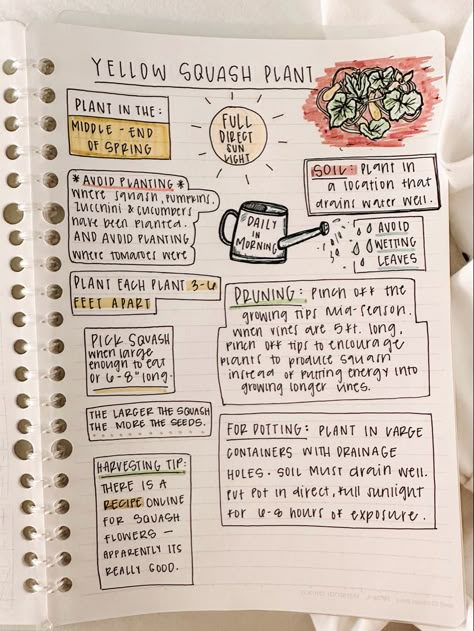 YELLOW SQUASH PLANT
PLANT IN THE:
MIDDLE - END
OF SPRING
FULL
DIRECT
SUN
LIGHT
SOIL: PLANT IN
a LOCATION THAT
DRAINS WATER WELL.
*AVOID PLANTING*
WHERE SQUASH, PUMPKINS,
ZUCCHINI & CUCUMBERS
HAVE BEEN PLANTED.
AND AVOID PLANTING
WHERE TOMATOES WERE
DAILY
IN
MORNING
AVOID
WETTING
LEAVES
PLANT EACH PLANT 3-6
FEET APART
PRUNING: PINCH OFF THE
GROWING TIPS MID-SEASON.
WHEN VINES ARE 5 FT. LONG,
PINCH OFF TIPS TO ENCOURAGE
PLANTS TO PRODUCE SQUASH
INSTEAD OF PUTTING ENERGY INTO
GROWING LONGER VINES.
PICK SQUASH
WHEN LARGE
ENOUGH TO EAT
OR 6-8" LONG.
THE LARGER THE SQUASH
THE MORE THE SEEDS.
FOR POTTING: PLANT IN LARGE
CONTAINERS WITH DRAINAGE
HOLES. SOIL MUST DRAIN WELL.
PUT POT IN DIRECT, FULL SUNLIGHT
FOR 6-8 HOURS OF EXPOSURE.
HARVESTING TIP:
THERE IS A
RECIPE ONLINE
FOR SQUASH
FLOWERS —
APPARENTLY ITS
REALLY GOOD.